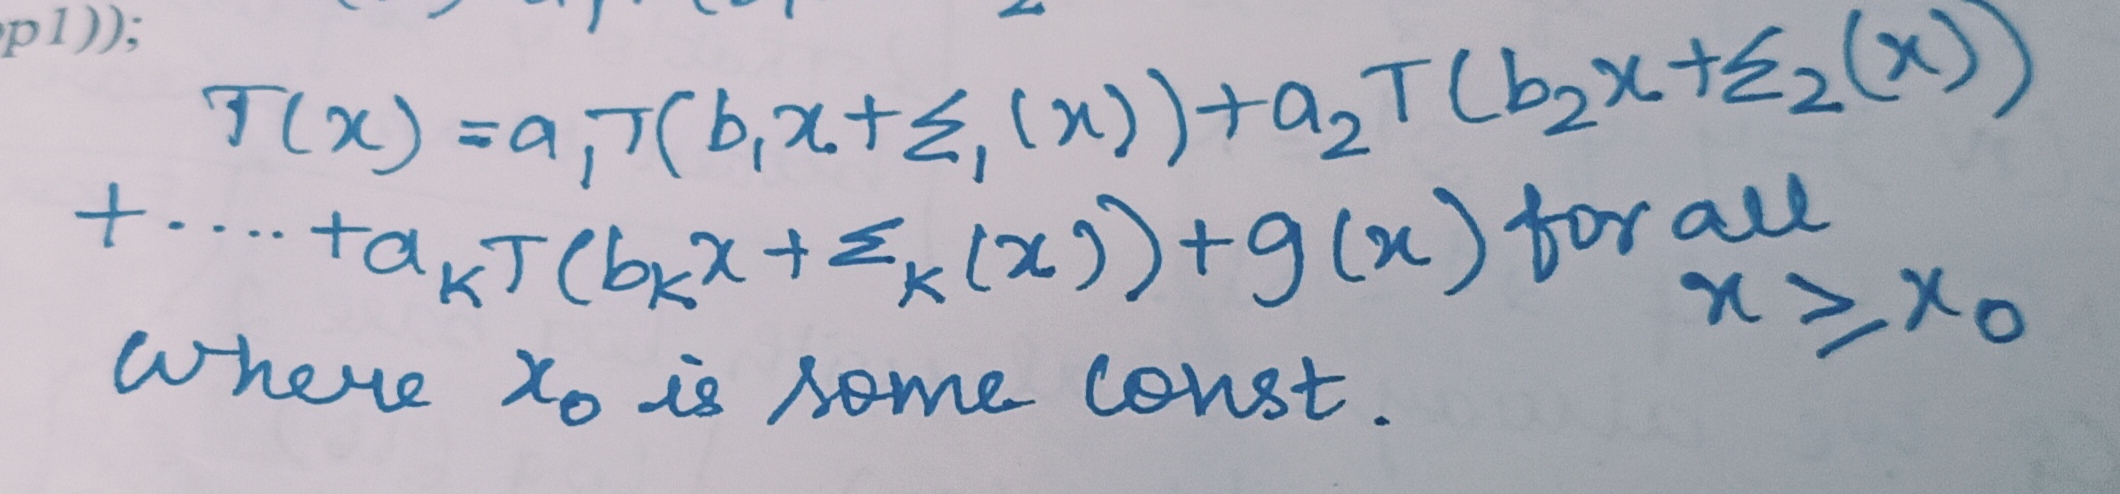 p1));
T(x) = a₁T(b₁x+Σ₁(x))+a₂T(b₂x+Σ₂(x))
+.....+aₖT(bₖx+Σₖ(x))+g(x) for all
x ≥ x₀
where x₀ is some const.